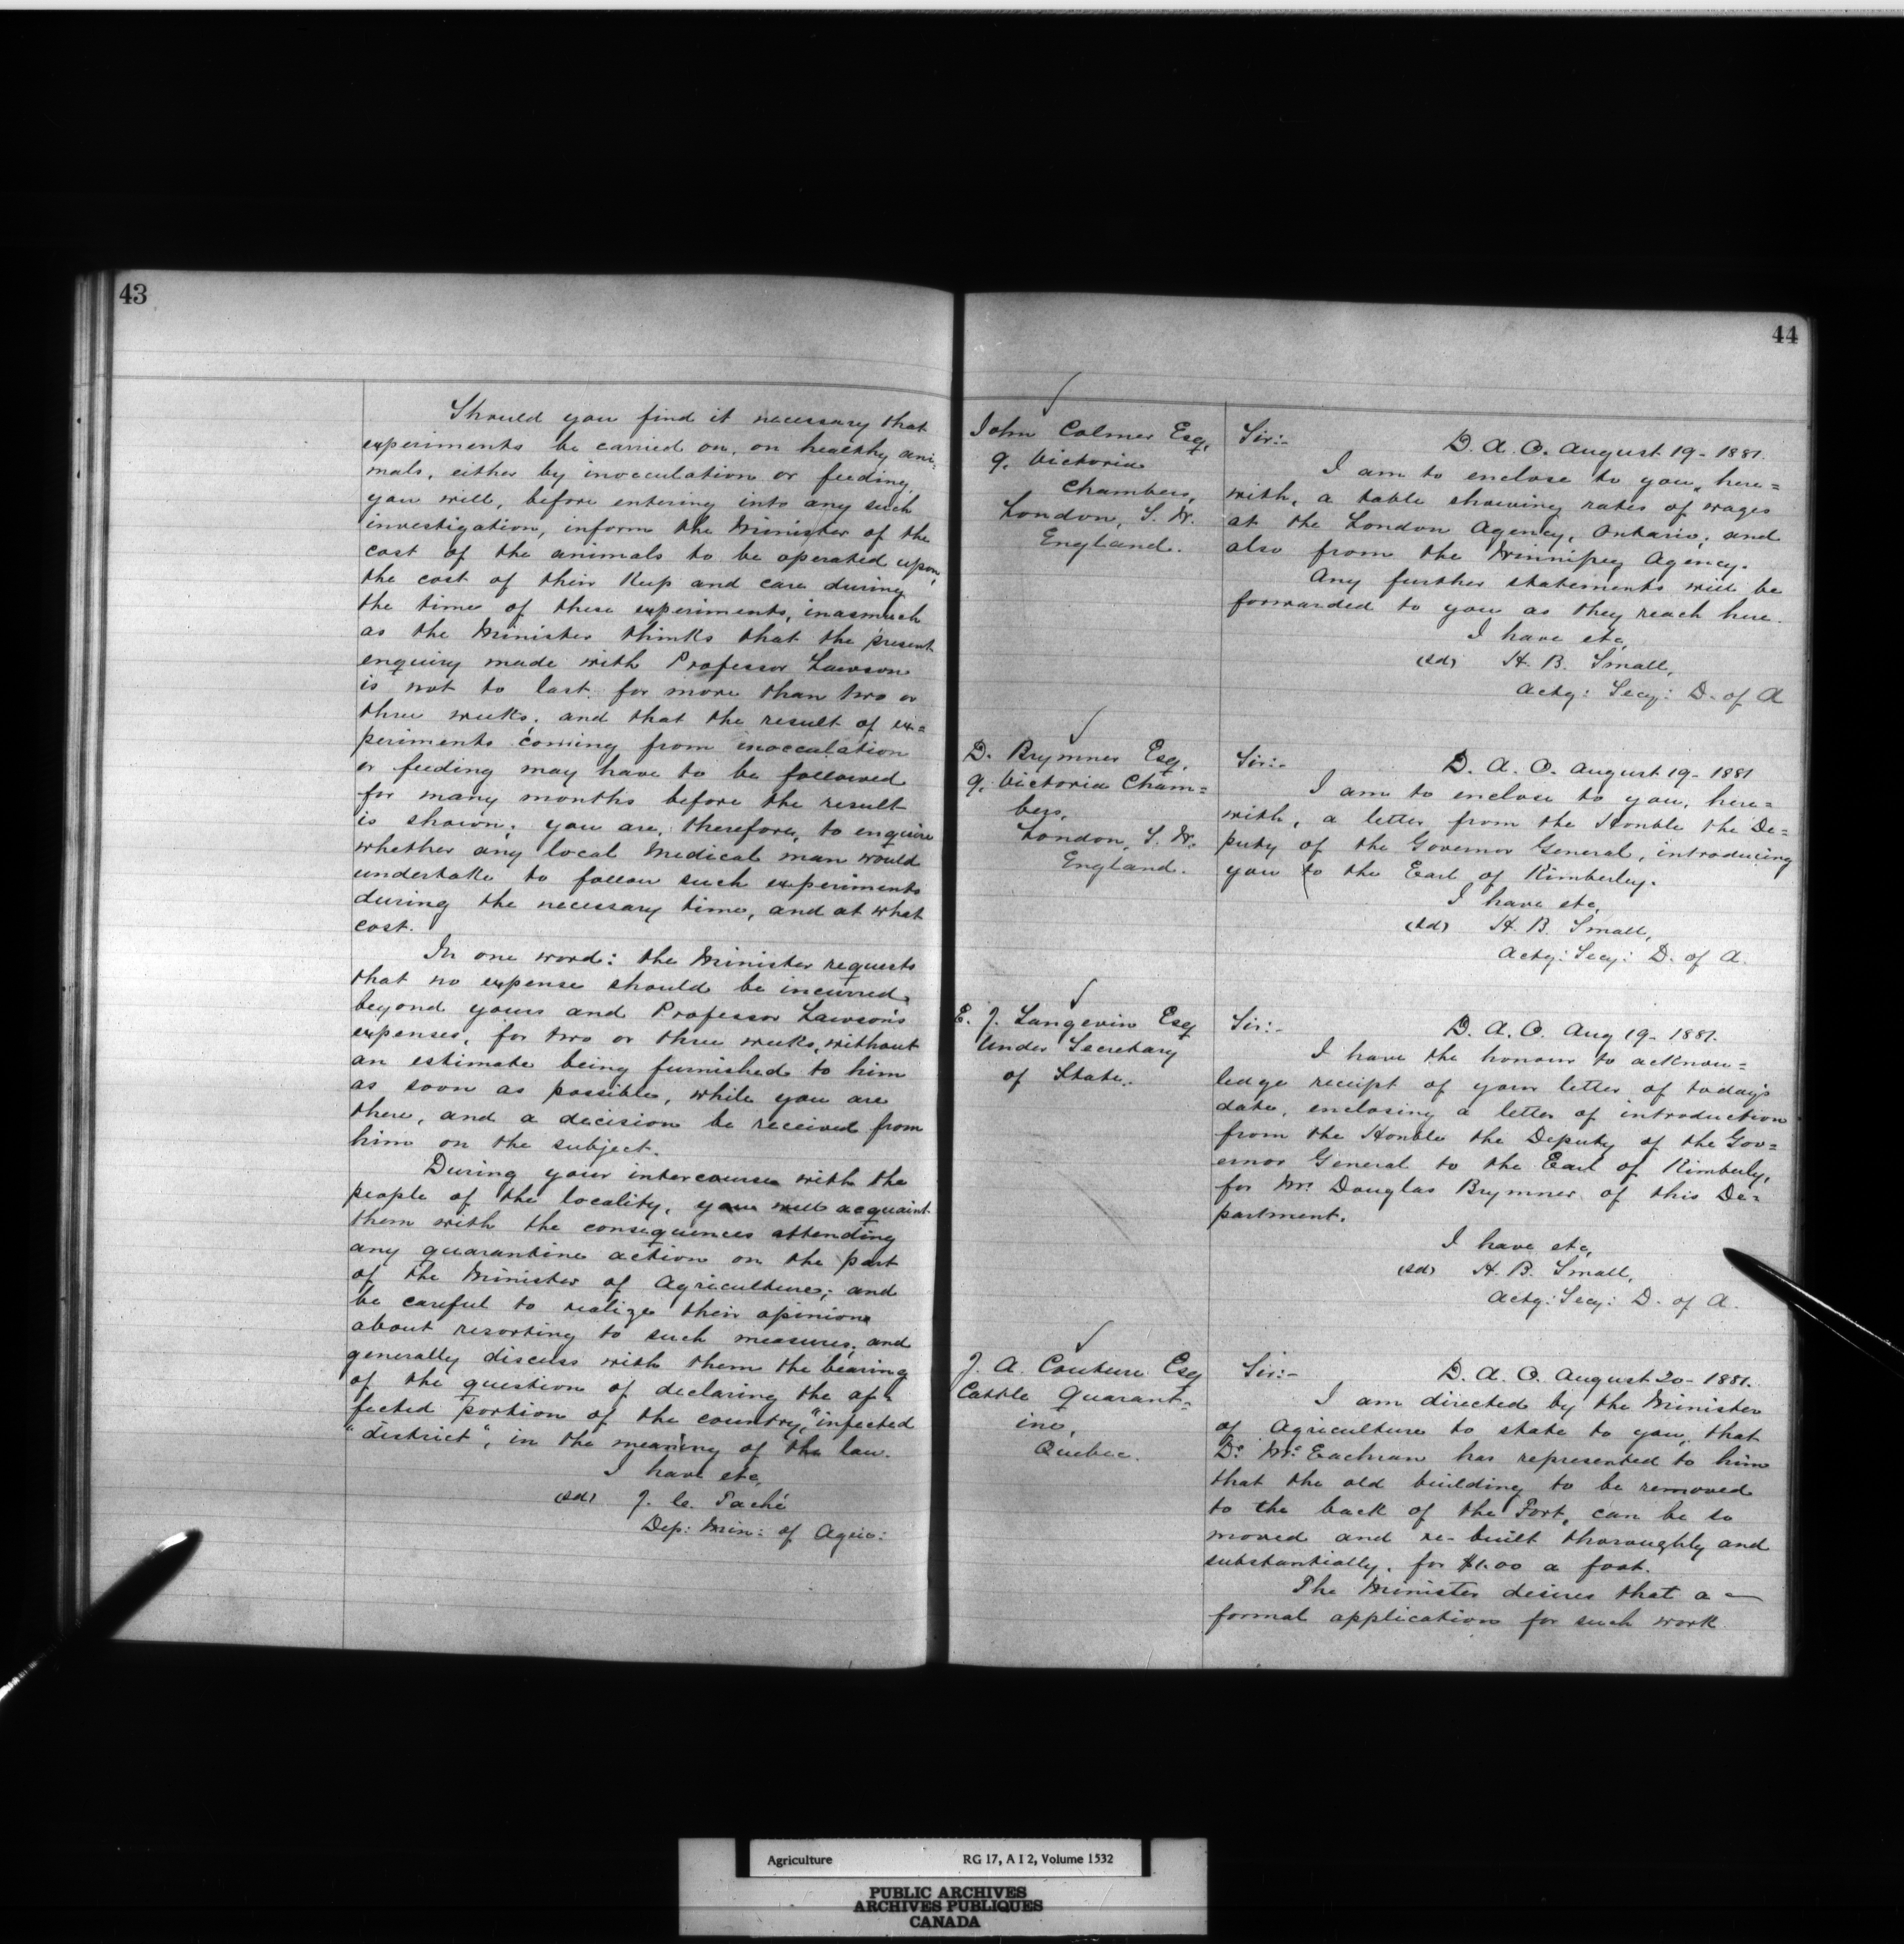 43
Should you find it necessary that
experiments be carried on, on healthy ani-
mals, either by inocculation or feeding,
you will, before entering into any such
investigation, inform the Minister of the
cost of the animals to be operated upon,
the cost of their Keep and care during
the time of these experiments, inasmuch
as the Minister thinks that the present
enquiry made with Professor Lawson
is not to last for more than two or
three weeks; and that the result of ex=
periments coming from inocculation
or feeding may have to be followed
for many months before the result
is shown; you are, therefore, to enquire
whether any local Medical man would
undertake to follow such experiments
during the necessary time, and at what
cost.
In one word: the Minister requests
that no expense should be incurred,
beyond yours and Professor Lawson's
expenses, for two or three weeks, without
an estimate being furnished to him
as soon as possible, while you are
there, and a decision be received from
him on the subject.
During your intercourse with the
people of the locality, you will acquaint
them with the consequences attending
any quarantine action on the part
of the Minister of Agriculture; and
be careful to realize their opinions
about resorting to such measures; and
generally discuss with them the bearing
of the question of declaring the af-
fected portion of the country, "infected
"district", in the meaning of the law.
I have etc,
(sd) J. C. Taché
Dep: Min: of Agric:
44
John Colmer Esq,
9, Victoria
Chambers,
London, S. W.
England.
Sir:-
D. A. O. August 19 - 1881.
I am to enclose to you, here=
with, a table showing rates of wages
at the London Agency, Ontario; and
also from the Winnipeg Agency.
Any further statements will be
forwarded to you as they reach here.
I have etc,
(sd) H. B. Small,
Actg: Secy: D. of A
D. Brymner Esq,
9, Victoria Cham=
bers,
London, S. W.
England.
Sir:-
D. A. O. August 19 - 1881
I am to enclose to you, here=
with, a letter from the Honble the De=
puty of the Governor General, introducing
you to the Earl of Kimberley.
I have etc,
(sd) H. B. Small,
Actg: Secy: D. of A.
E. J. Langevin Esq
Under Secretary
of State.
Sir:-
D. A. O. Aug 19 - 1881.
I have the honour to acknow=
ledge receipt of your letter of today's
date, enclosing a letter of introduction
from the Honble the Deputy of the Gov=
ernor General to the Earl of Kimberly,
for Mr. Douglas Brymner of this De=
partment.
I have etc,
(sd) H. B. Small,
Actg: Secy: D. of A.
J. A. Couture Esq
Cattle Quarant=
ine,
Quebec.
Sir:-
D. A. O. August 20 - 1881.
I am directed by the Minister
of Agriculture to state to you, that
Dr. McEachran has represented to him
that the old building to be removed
to the back of the Fort, can be so
moved and re-built thoroughly and
substantially, for $1.00 a foot.
The Minister desires that a
formal application for such work
Agriculture RG 17, A I 2, Volume 1532
PUBLIC ARCHIVES
ARCHIVES PUBLIQUES
CANADA